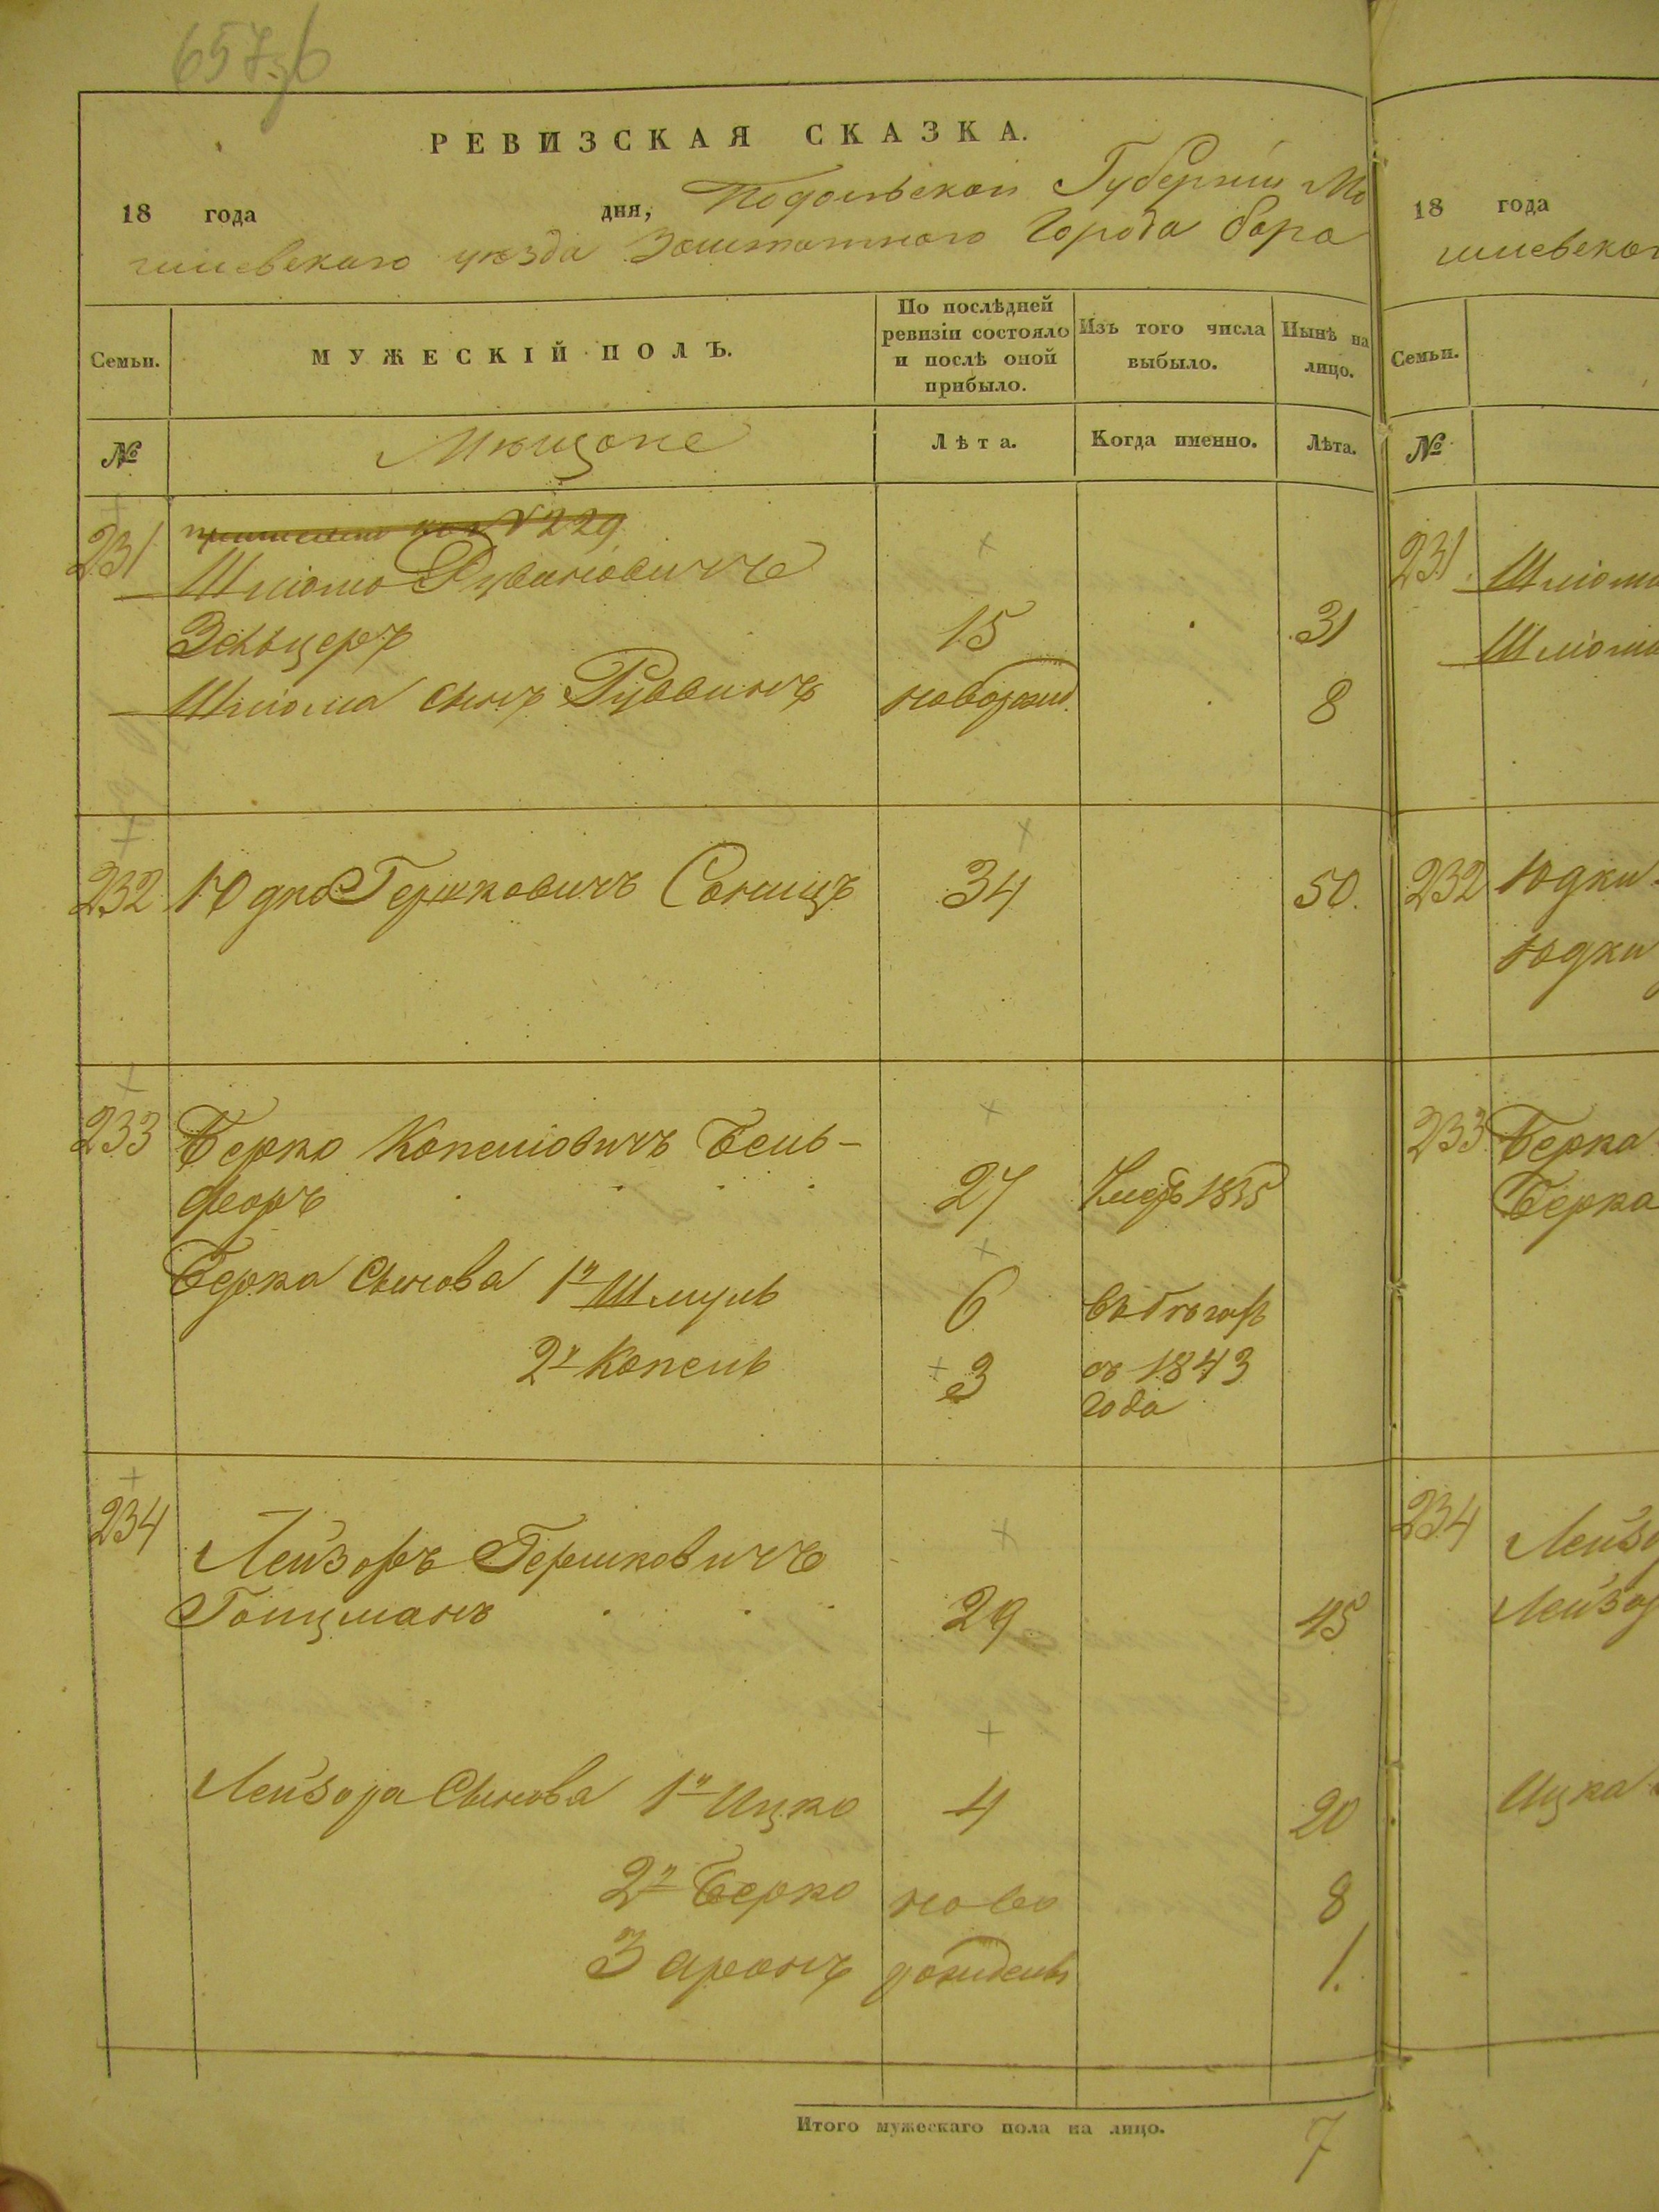 657 об
РЕВИЗСКАЯ СКАЗКА.
18 года дня, Подольской Губерніи Мо
гилевскаго уѣзда Заштатнаго Города Бара
Семьи.
МУЖЕСКІЙ ПОЛЪ.
По послѣдней ревизіи состояло и послѣ оной прибыло.
Изъ того числа выбыло.
Нынѣ на лицо.
№
Мѣщане
Лѣта.
Когда именно.
Лѣта.
231
№ 229
Шліома Рувиновичъ
Зельцеръ 15 31
Шліома сынъ Руввинъ новорожд. 8
232 Юдко Гершковичъ 34 50.
233 Берко Копеліовичъ Бель-
феоръ 27 1835
Берка Сынова 1й Шмуль 6 въ бѣгахъ
2й Копель 3 съ 1843
года
234
Лейзоръ Гершковичъ
Гольцманъ 29 45
Лейзора Сынова 1й Ицко 4 20
2й Берко ново 8
3 Аронъ рожденъ 1.
Итого мужескаго пола на лицо. 7
18 года
Семьи.
№
231
232 Юдки
Юдки
233 Берка
Берка
234
Ицка